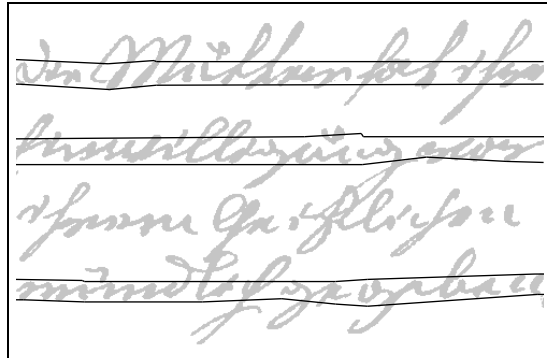 Die Mutter hat ihre
Einwilligung vor
ihrem Geistlichen
mündlich gegeben